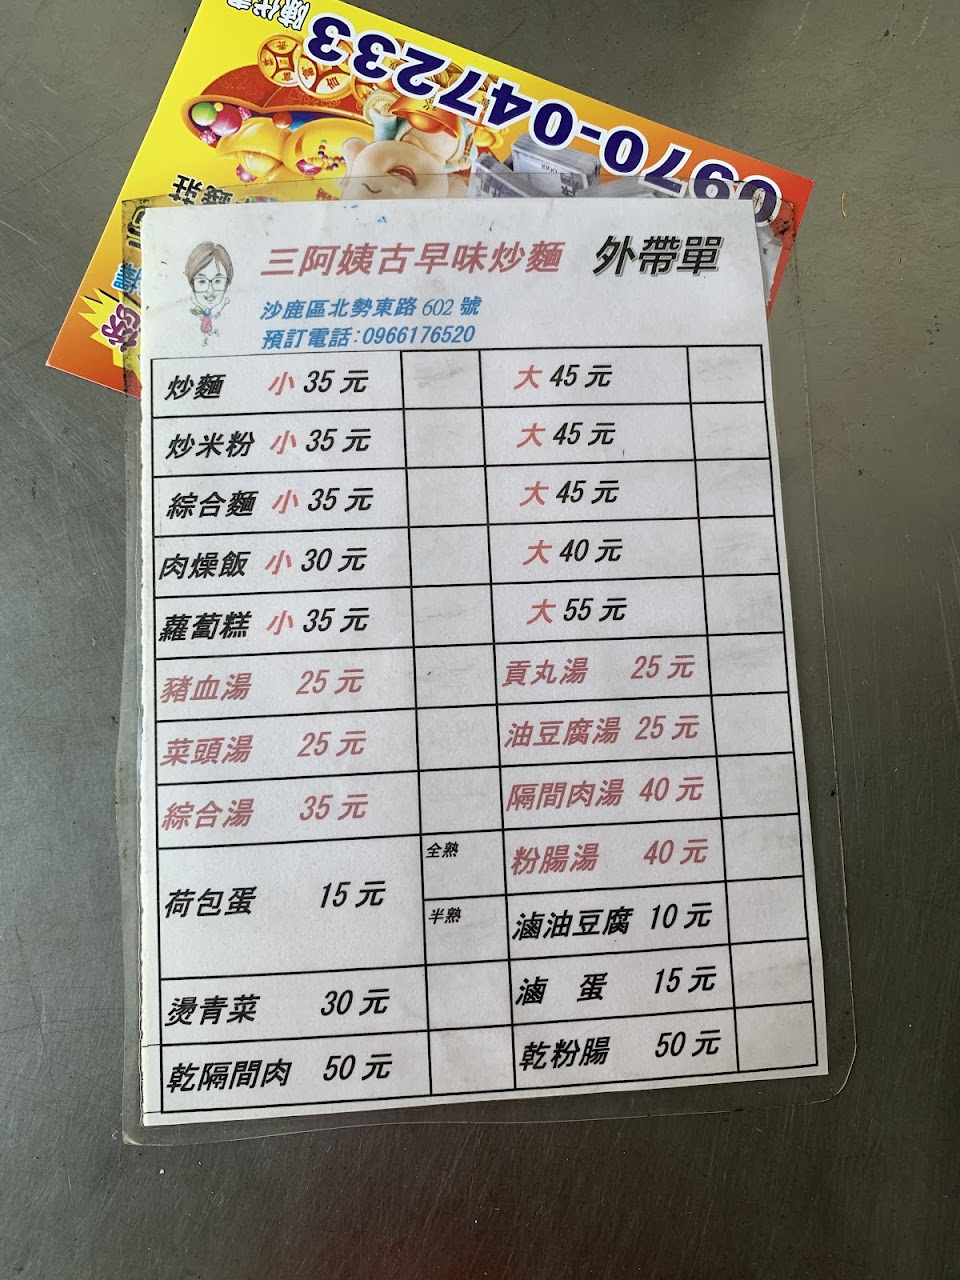 陳代書
0970-047233
三阿姨古早味炒麵 外帶單
沙鹿區北勢東路 602 號
預訂電話:0966176520
炒麵 小 35 元 大 45 元
炒米粉 小 35 元 大 45 元
綜合麵 小 35 元 大 45 元
肉燥飯 小 30 元 大 40 元
蘿蔔糕 小 35 元 大 55 元
豬血湯 25 元 貢丸湯 25 元
菜頭湯 25 元 油豆腐湯 25 元
綜合湯 35 元 隔間肉湯 40 元
荷包蛋 15 元 全熟 粉腸湯 40 元
半熟 滷油豆腐 10 元
燙青菜 30 元 滷 蛋 15 元
乾隔間肉 50 元 乾粉腸 50 元